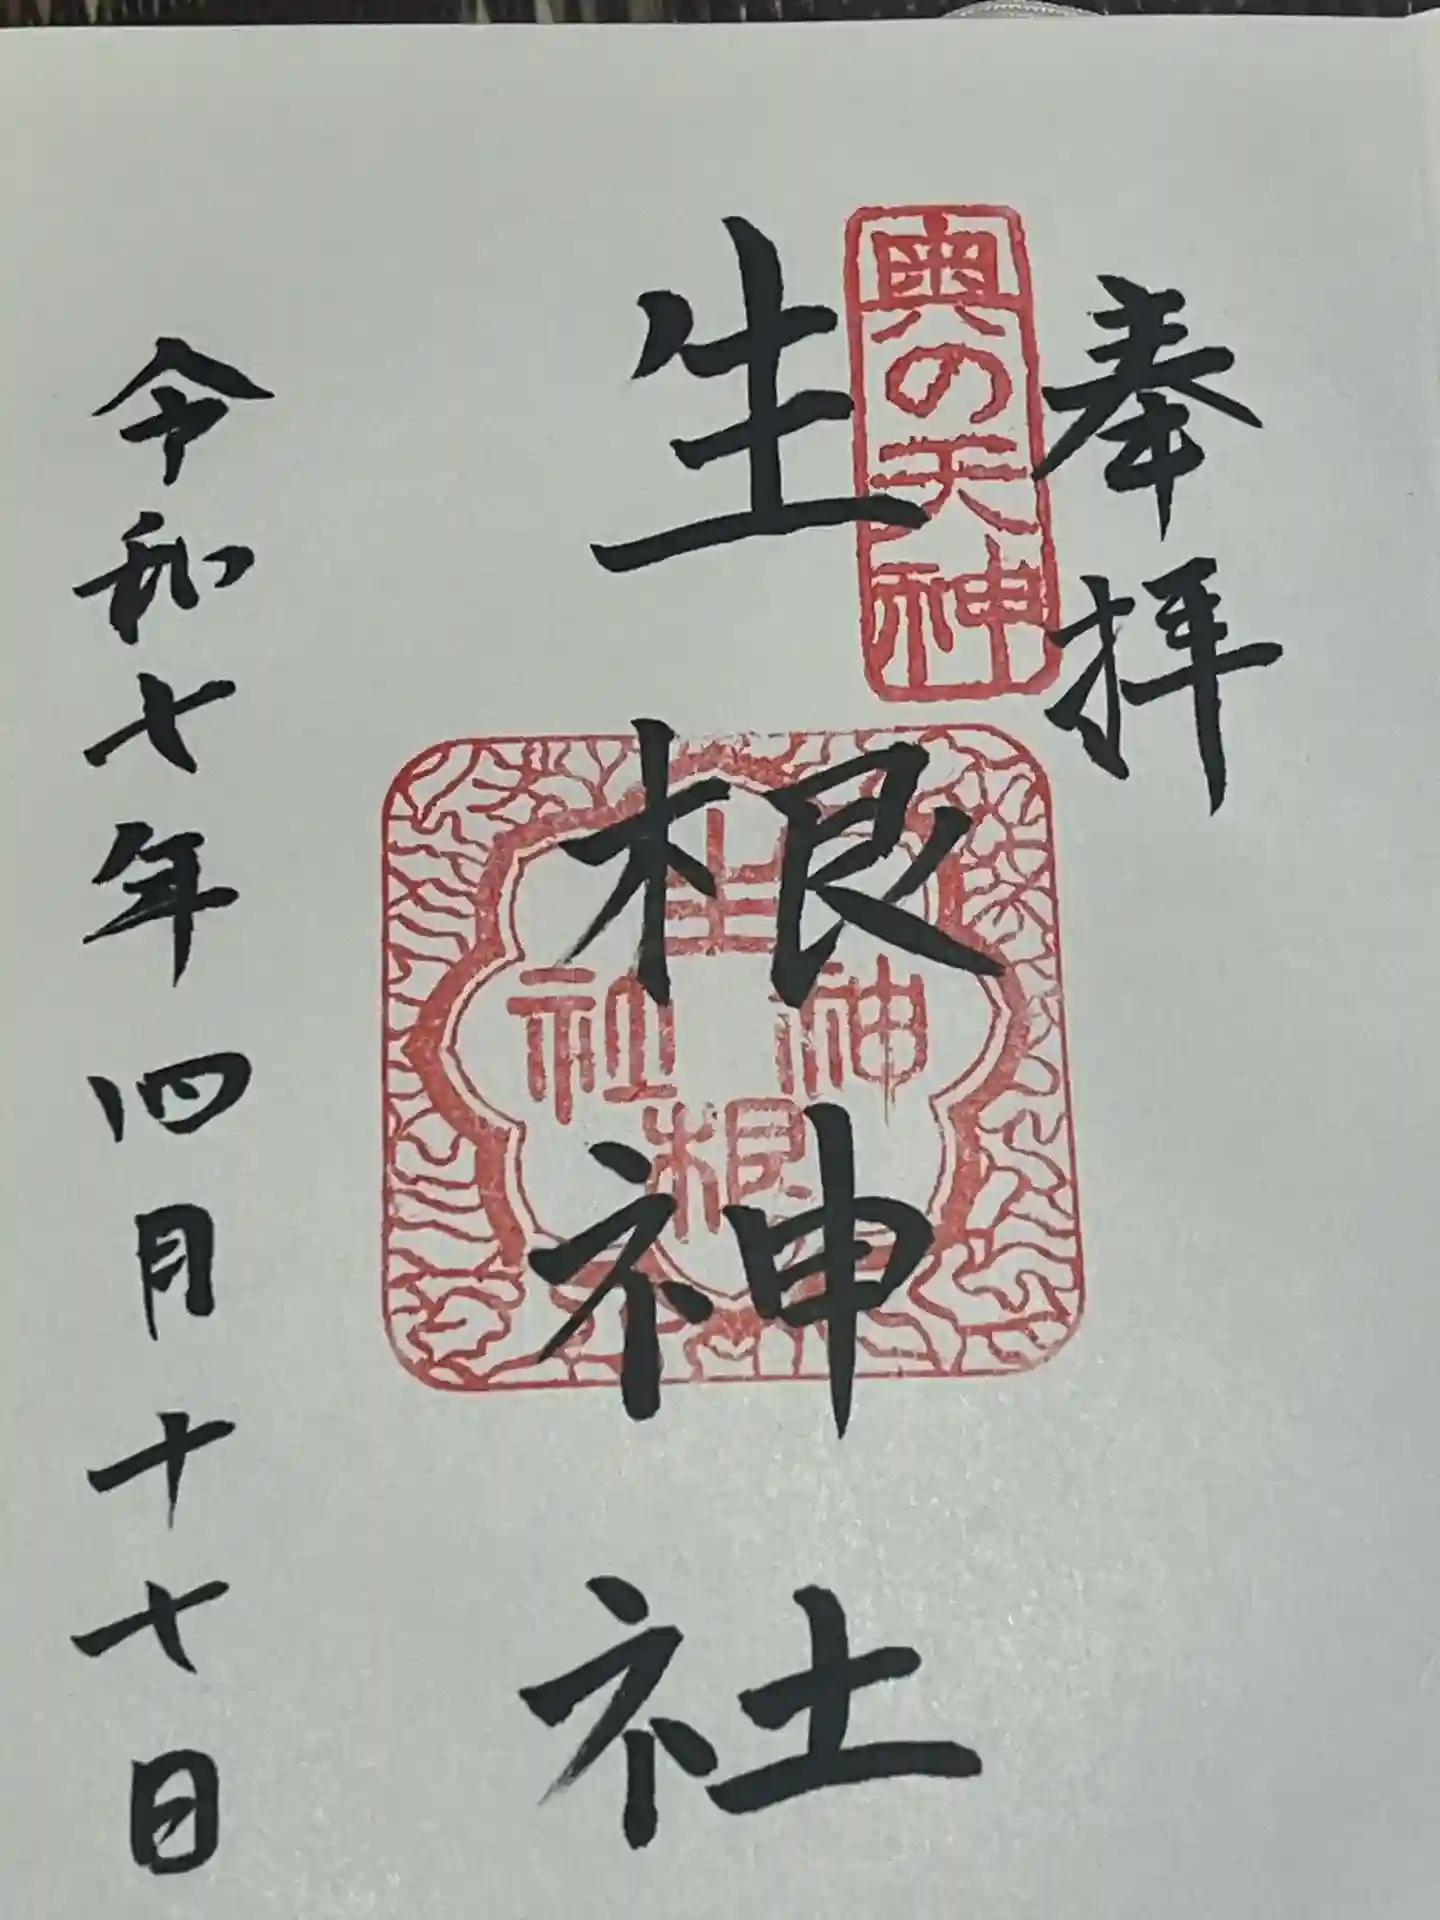 奉拝
奥の天神
生根神社
生根神社
令和七年四月十七日